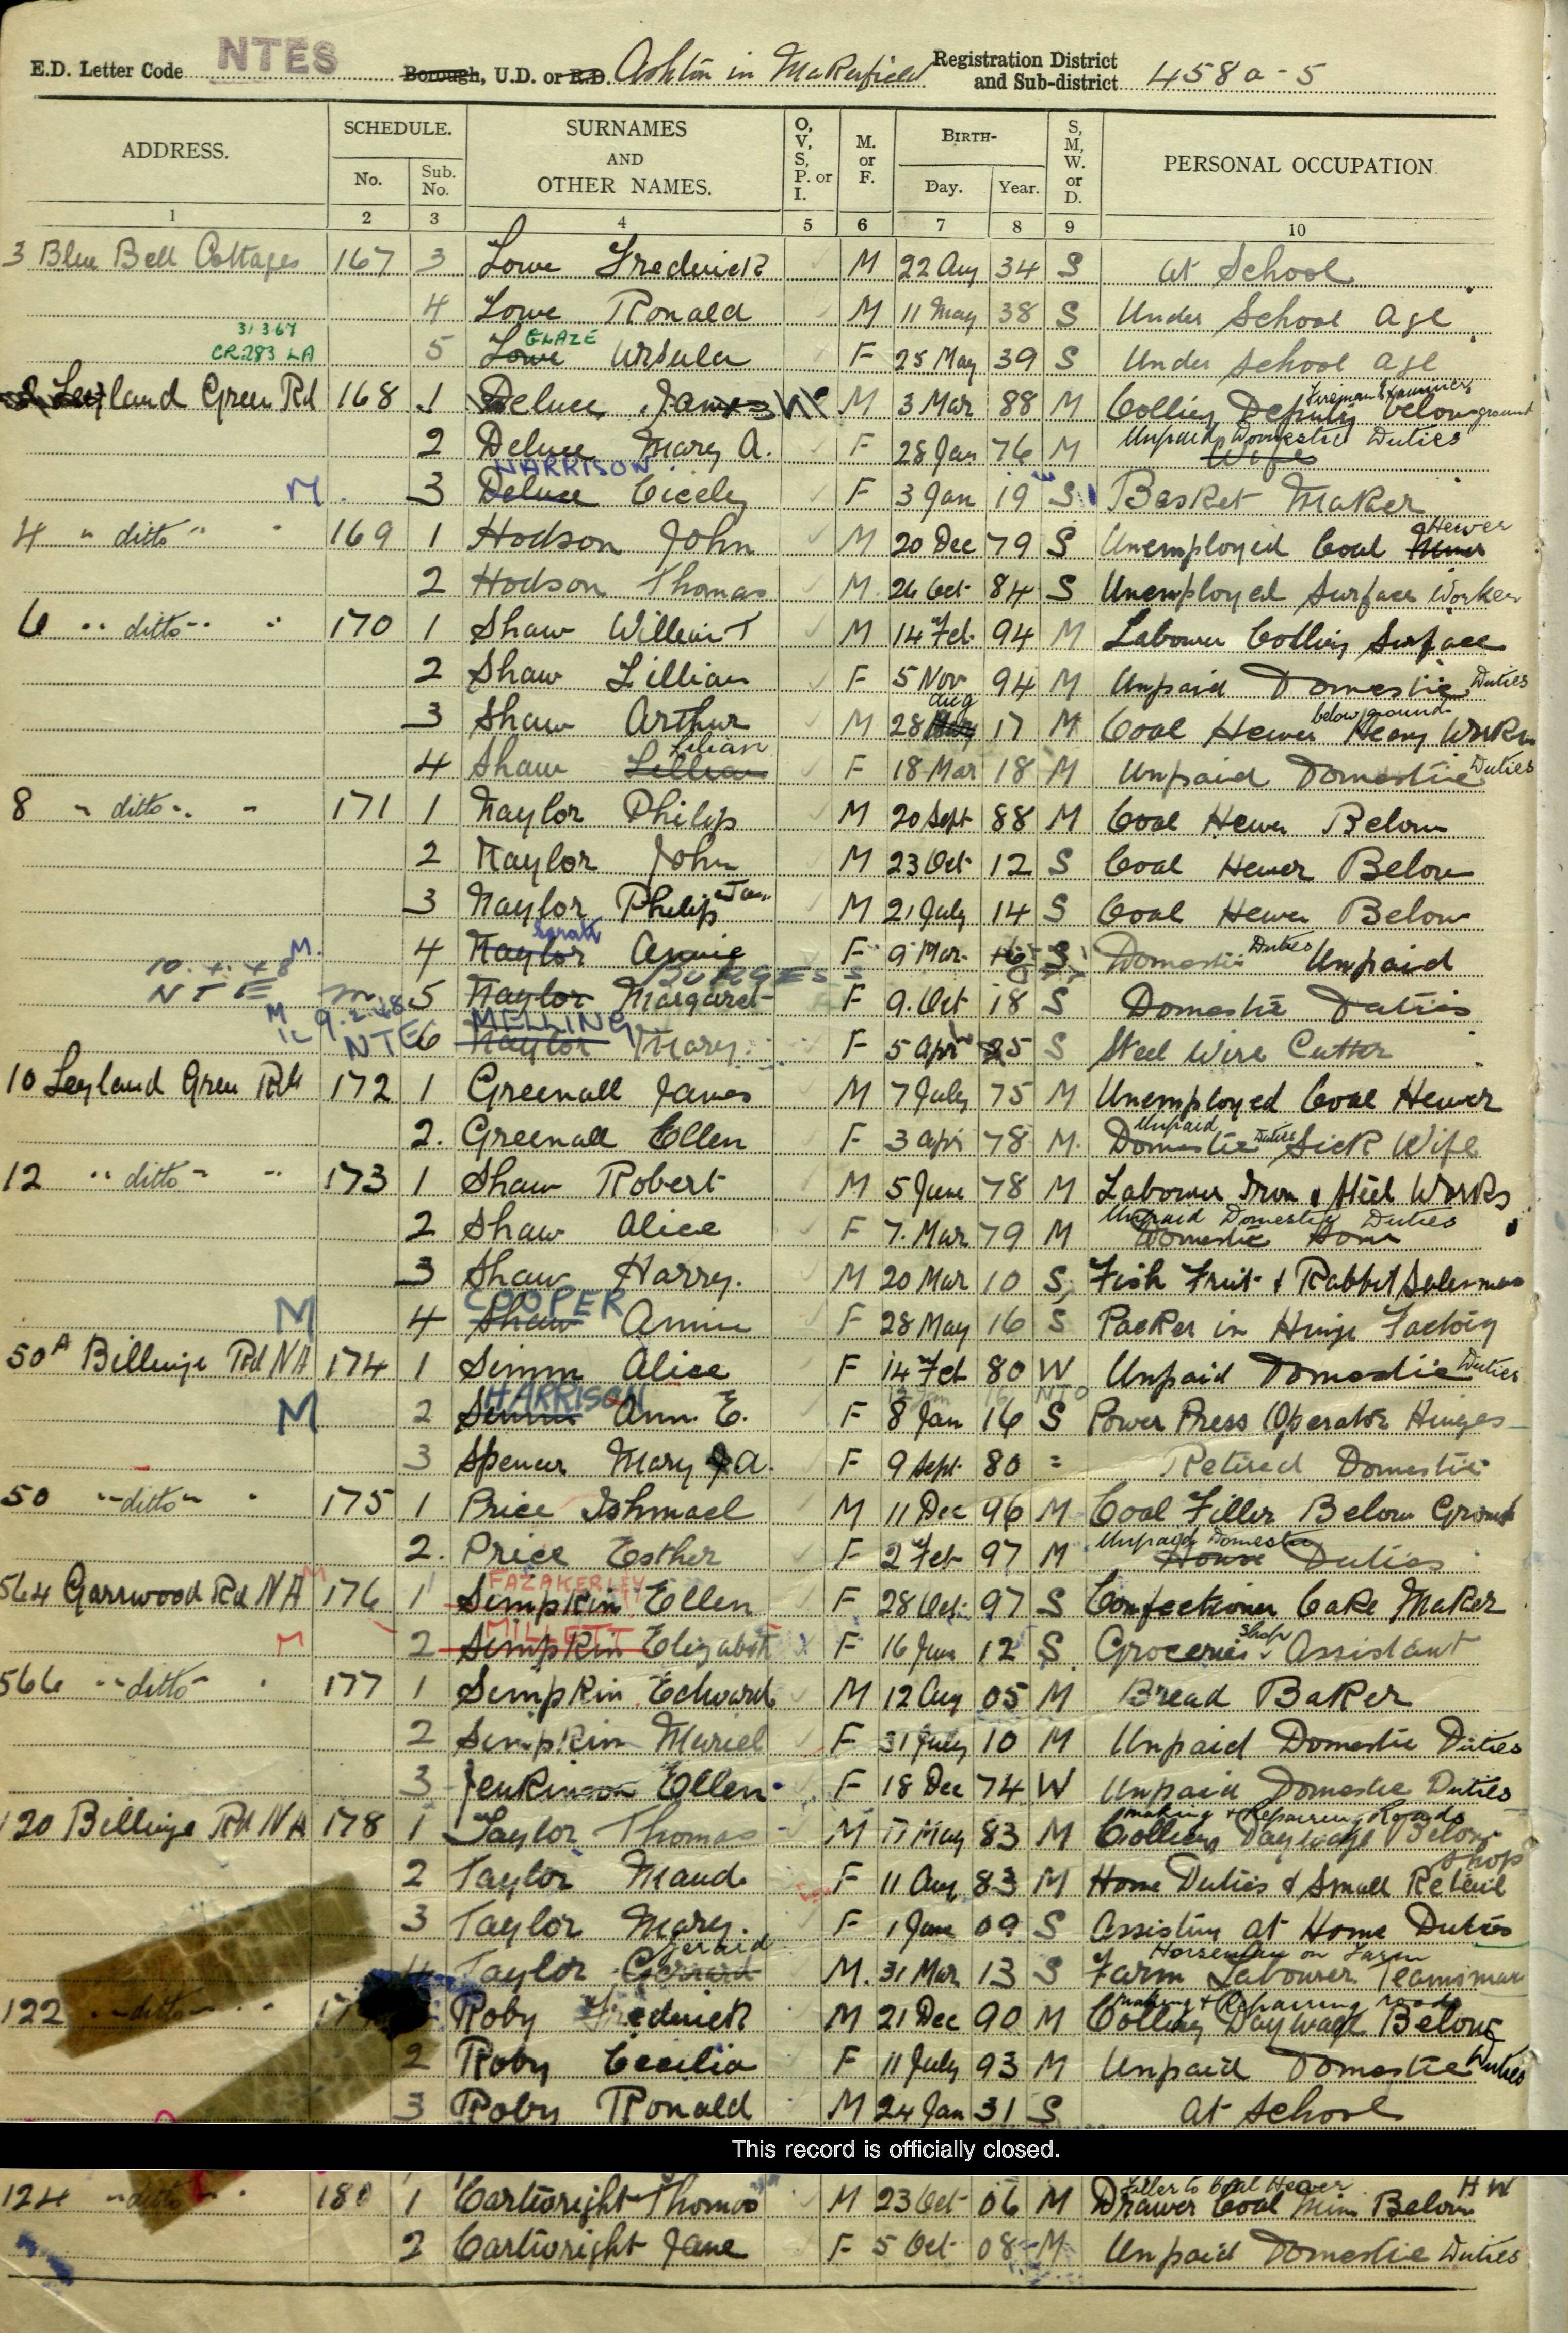 E.D. Letter Code NTES Borough, U.D. or R.D. Ashton in Makerfield Registration District and Sub-district 458a-5
ADDRESS. SCHEDULE. No. Sub. No. SURNAMES AND OTHER NAMES. O, V, S, P. or I. M. or F. BIRTH- Day. Year. S, M, W. or D. PERSONAL OCCUPATION.
1 2 3 4 5 6 7 8 9 10
3 Blue Bell Cottages 167 3 Lowe Frederick M 22 Aug 34 S at School
4 Lowe Ronald M 11 May 38 S Under School age
31 3 67 GLAZE
CR283 LA 5 Lowe Ursula F 25 May 39 S Under school age
Leyland Green Rd 168 1 Deluce James M 3 Mar 88 M Colliery Deputy Fireman Examiner below ground
2 Deluce Mary A. F 28 Jan 76 M Unpaid Domestic Duties Wife
HARRISON
M. 3 Deluce Cicely F 3 Jan 19 S Basket Maker
4 " ditto " " 169 1 Hodson John M 20 Dec 79 S Unemployed Coal Hewer
2 Hodson Thomas M 26 Oct 84 S Unemployed Surface Worker
6 " ditto " " 170 1 Shaw William T M 14 Feb 94 M Labourer Colliery Surface
2 Shaw Lillian F 5 Nov 94 M Unpaid Domestic Duties
3 Shaw Arthur M 28 Aug 17 M Coal Hewer below ground Heavy Worker
4 Shaw Lillian Lilian F 18 Mar 18 M Unpaid Domestic Duties
8 " ditto " " 171 1 Naylor Philip M 20 Sept 88 M Coal Hewer Below
2 Naylor John M 23 Oct 12 S Coal Hewer Below
3 Naylor Philip M 21 July 14 S Coal Hewer Below
Sarah
M. 4 Naylor Annie F 9 Mar 16 S Domestic Duties Unpaid
10. 4. 48 BURGESS
NTE 5 Naylor Margaret F 9 Oct 18 S Domestic Duties
M 9.2.48 MELLING
NTE 6 Naylor Mary F 5 Apr 25 S Steel Wire Cutter
10 Leyland Green Rd 172 1 Greenall James M 7 July 75 M Unemployed Coal Hewer
2. Greenall Ellen F 3 Apr 78 M. Unpaid Domestic Duties Sick Wife
12 " ditto " " 173 1 Shaw Robert M 5 June 78 M Labourer Iron & Steel Works
2 Shaw Alice F 7. Mar 79 M Unpaid Domestic Duties Domestic Home
3 Shaw Harry. M 20 Mar 10 S Fish Fruit & Rabbit Salesman
COOPER
M 4 Shaw Annie F 28 May 16 S Packer in Hinge Factory
50A Billinge Rd NA 174 1 Simm Alice F 14 Feb 80 W Unpaid Domestic Duties
HARRISON
M 2 Simm Ann. E. F 8 Jan 16 S Power Press Operator Hinges
3 Spencer Mary A. F 9 Sept 80 = Retired Domestic
50 " ditto " " 175 1 Price Ishmael M 11 Dec 96 M Coal Filler Below Ground
2. Price Esther F 2 Feb 97 M Unpaid Domestic House Duties
M FAZAKERLEY
564 Garswood Rd NA 176 1 Simpkin Ellen F 28 Oct 97 S Confectioner Cake Maker
MILLETT
M 2 Simpkin Elizabeth F 16 Jun 12 S. Groceries Shop Assistant
566 " ditto " " 177 1 Simpkin Edward M 12 Aug 05 M Bread Baker
2 Simpkin Muriel F 31 July 10 M Unpaid Domestic Duties
3 Jenkinson Ellen F 18 Dec 74 W Unpaid Domestic Duties
120 Billinge Rd NA 178 1 Taylor Thomas M 17 May 83 M Colliery Daywage Below making & Repairing Roads
2 Taylor Maud F 11 Aug 83 M Home Duties & Small Retail Shop
3 Taylor Mary. F 1 June 09 S Assisting at Home Duties
4 Taylor Gerrard Gerald M. 31 Mar 13 S Farm Labourer Teamsman Horseman on Farm
122 " ditto " " Roby Frederick M 21 Dec 90 M Colliery Daywage Below making & Repairing roads
2 Roby Cecilia F 11 July 93 M Unpaid Domestic Duties
3 Roby Ronald M 24 Jan 31 S at school
This record is officially closed.
124 " ditto " " 180 1 Cartwright Thomas M 23 Oct 06 M Drawer Coal Mine Below Filler to Coal Hewer H W
2 Cartwright Jane F 5 Oct 08 M Unpaid Domestic Duties